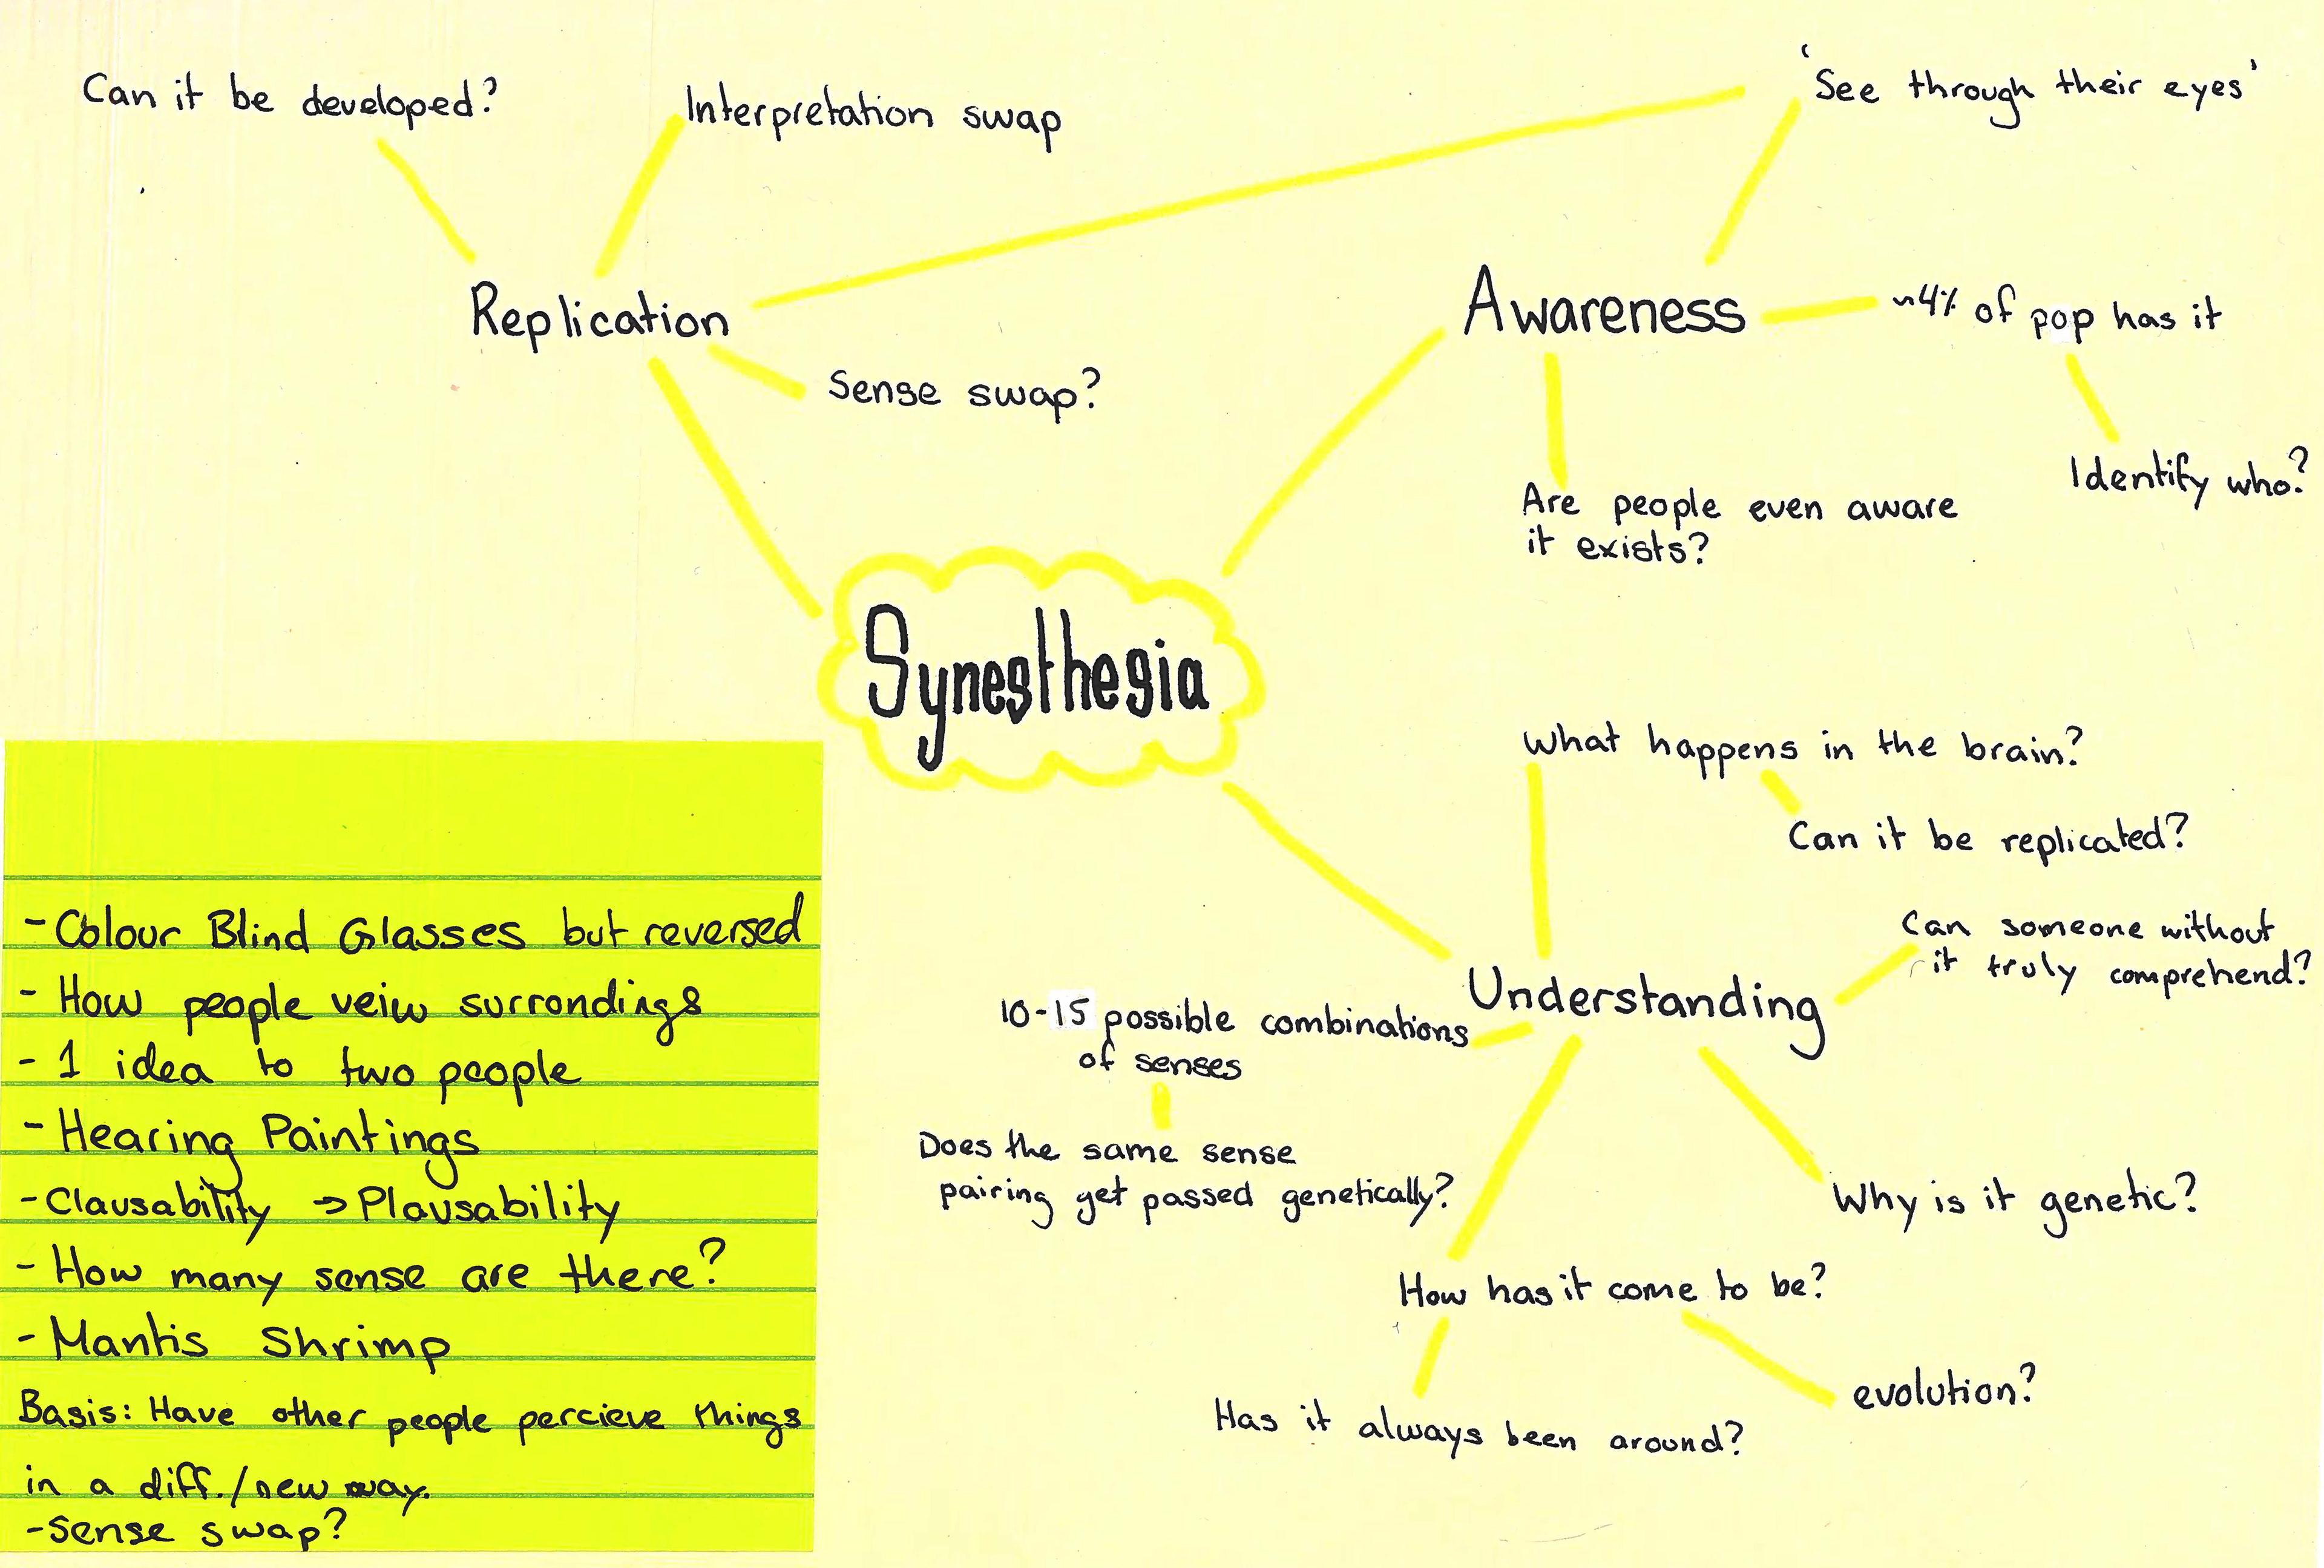 Can it be developed?
Interpretation swap
'See through their eyes'
Replication
Awareness
~4% of pop has it
Sense swap?
Identify who?
Are people even aware
it exists?
Synesthesia
What happens in the brain?
Can it be replicated?
Can someone without
it truly comprehend?
Understanding
10-15 possible combinations
of senses
Does the same sense
pairing get passed genetically?
Why is it genetic?
How has it come to be?
evolution?
Has it always been around?
- Colour Blind Glasses but reversed
- How people veiw surrondings
- 1 idea to two people
- Hearing Paintings
- Clausability → Plausability
- How many sense are there?
- Mantis Shrimp
Basis: Have other people percieve things
in a diff./new way.
- Sense swap?